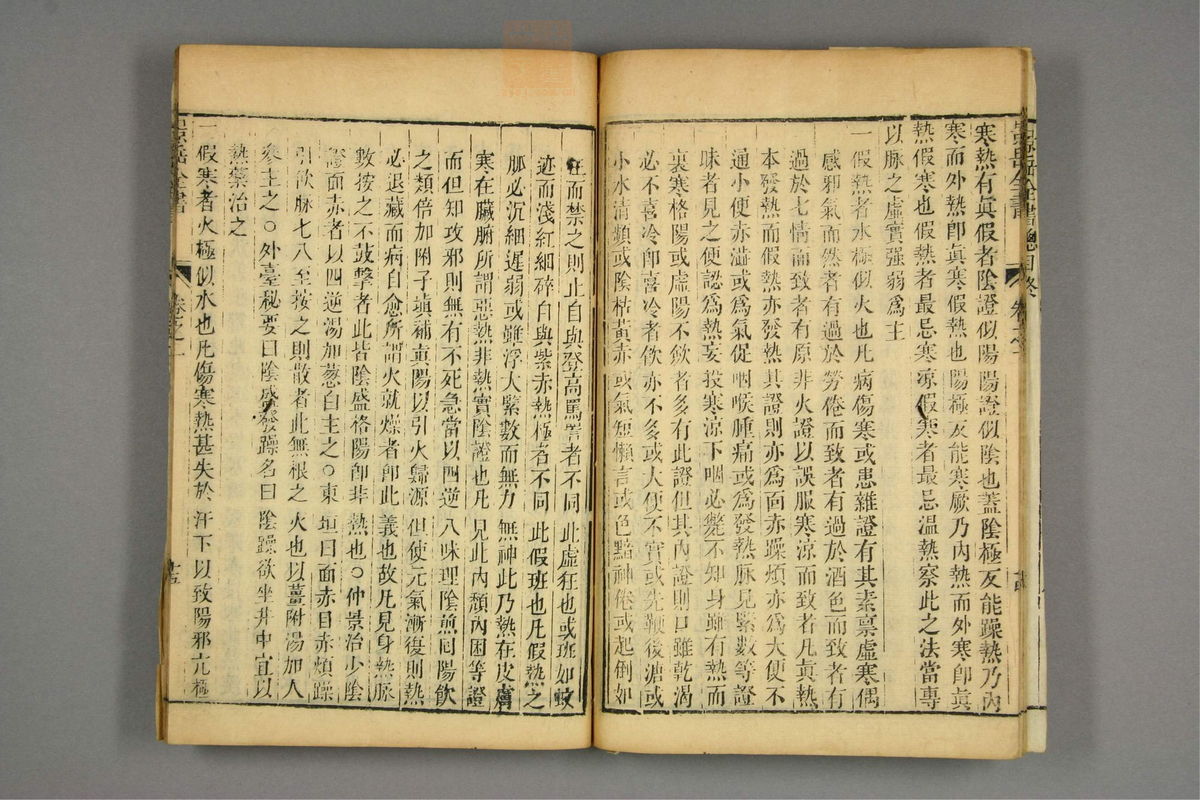 寒熱有眞假者陰證似陽陽證似陰也蓋陰極反能躁熱乃內
寒而外熱卽眞寒假熱也陽極反能寒厥乃內熱而外寒卽眞
熱假寒也假熱者最忌寒凉假寒者最忌温熱察此之法當專
以脉之虛實强弱爲主
一假熱者水極似火也凡病傷寒或患雜證有其素禀虛寒偶
感邪氣而然者有過於勞倦而致者有過於酒色而致者有
過於七情而致者有原非火證以誤服寒凉而致者凡眞熱
本發熱而假熱亦發熱其證則亦爲面赤躁煩亦爲大便不
通小便赤澁或爲氣促咽喉腫痛或爲發熱脉見緊數等證
昧者見之便認爲熱妄投寒凉下咽必斃不知身雖有熱而
裏寒格陽或虛陽不斂者多有此證但其內證則口雖乾渴
必不喜冷卽喜冷者飲亦不多或大便不實或先鞕後溏或
小水清頻或陰枯黃赤或氣短懶言或色黯神倦或起倒如
狂而禁之則止自與登高罵詈者不同此虛狂也或班如蚊
迹而淺紅細碎自與紫赤熱極者不同此假班也凡假熱之
脈必沉細遲弱或雖浮大緊數而無力無神此乃熱在皮膚
寒在臟腑所謂惡熱非熱實陰證也凡見此內頹內困等證
而但知攻邪則無有不死急當以四逆八味理陰煎囘陽飲
之類倍加附子塡補眞陽以引火歸源但使元氣漸復則熱
必退藏而病自愈所謂火就燥者卽此義也故凡見身熱脉
數按之不鼓擊者此皆陰盛格陽卽非熱也○仲景治少陰
證面赤者以四逆湯加葱白主之○東垣曰面赤目赤煩躁
引飲脉七八至按之則散者此無根之火也以薑附湯加人
參主之○外臺秘要曰陰盛發躁名曰陰躁欲坐井中宜以
熱藥治之
一假寒者火極似水也凡傷寒熱甚失於汗下以致陽邪亢極
景岳全書
卷之一
十五